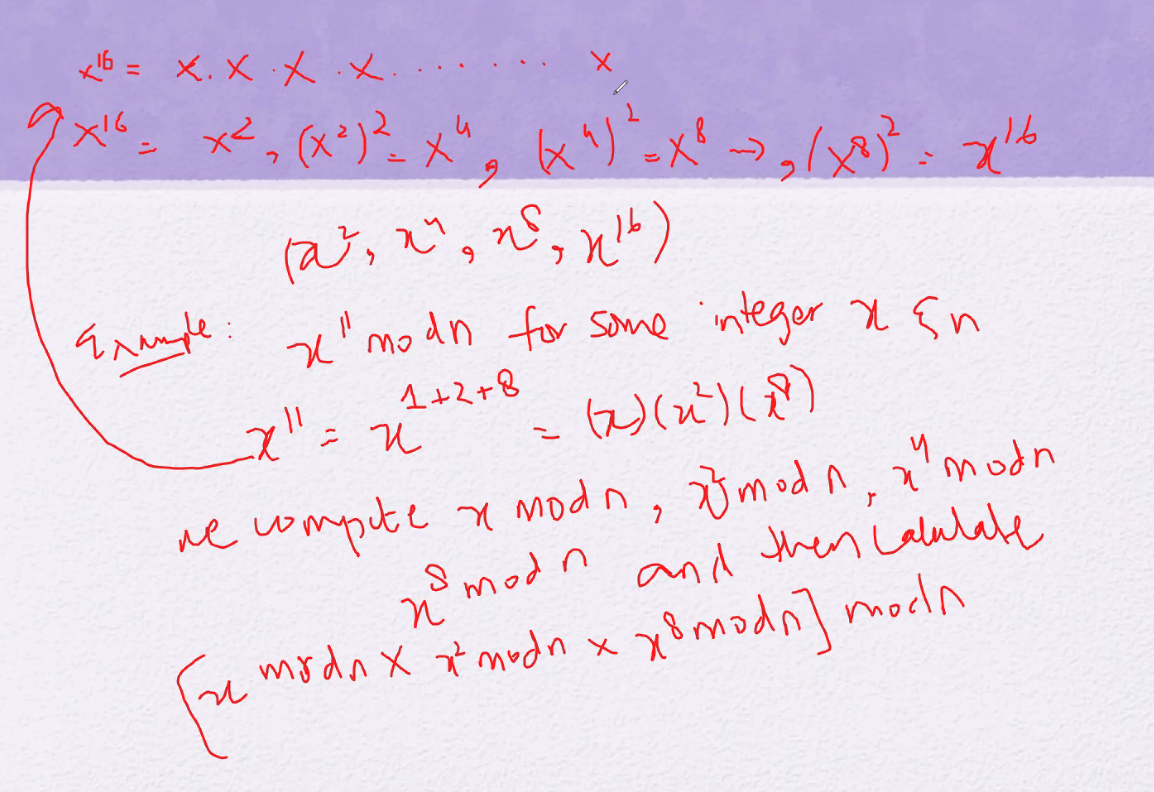 x¹⁶ = x . x . x . x . . . . . . . . x
x¹⁶ = x², (x²)² = x⁴, (x⁴)² = x⁸ →, (x⁸)² = x¹⁶
(x², x⁴, x⁸, x¹⁶)
Example: x¹¹ mod n for some integer x & n
x¹¹ = x¹⁺²⁺⁸ = (x)(x²)(x⁸)
we compute x mod n, x² mod n, x⁴ mod n
x⁸ mod n and then Calculate
[x mod n × x² mod n × x⁸ mod n] mod n